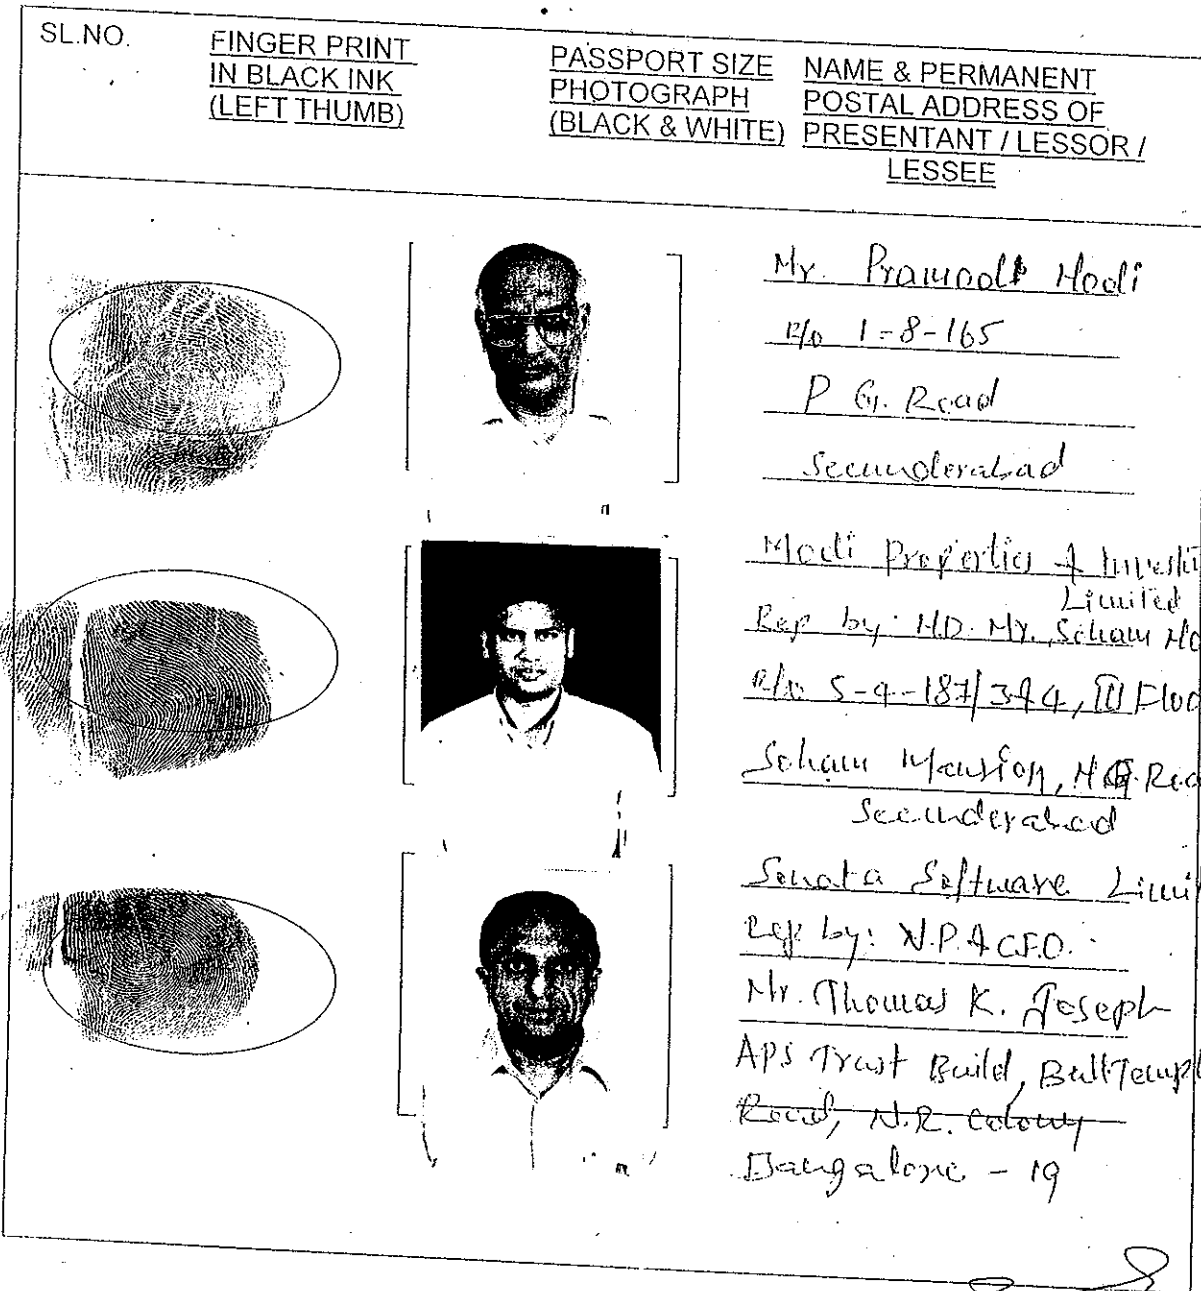 SL.NO.
FINGER PRINT
IN BLACK INK
(LEFT THUMB)
PASSPORT SIZE
PHOTOGRAPH
(BLACK & WHITE)
NAME & PERMANENT
POSTAL ADDRESS OF
PRESENTANT / LESSOR /
LESSEE
Mr. Pramodh Modi
R/o 1-8-165
P G. Road
Secunderabad
Modi Properties &
Limited
Rep by: M.D. Mr. Soham
R/o 5-4-187/3&4, III
Soham Mansion, M.G.
Secunderabad
Sonata Software
Rep by: V.P. & C.F.O.
Mr. Thomas K. Joseph
APS Trust Build, Bull
Road, N.R. Colony
Bangalore - 19